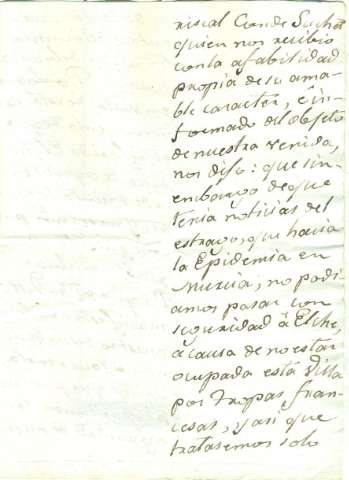 riscal Conde Suchet
quien nos recibio
con la afabilidad
propia de su ama-
ble caracter, é in-
formado del Objeto
de nuestra venida,
nos dijo: que sin-
embargo de que
tenia noticias del
estrago, que hacia
la Epidemia en
Murcia, no podi-
amos pasar con
seguridad á Elche,
á causa de no estar
ocupada esta Villa
por tropas fran-
cesas, y asi que
tratasemos solo